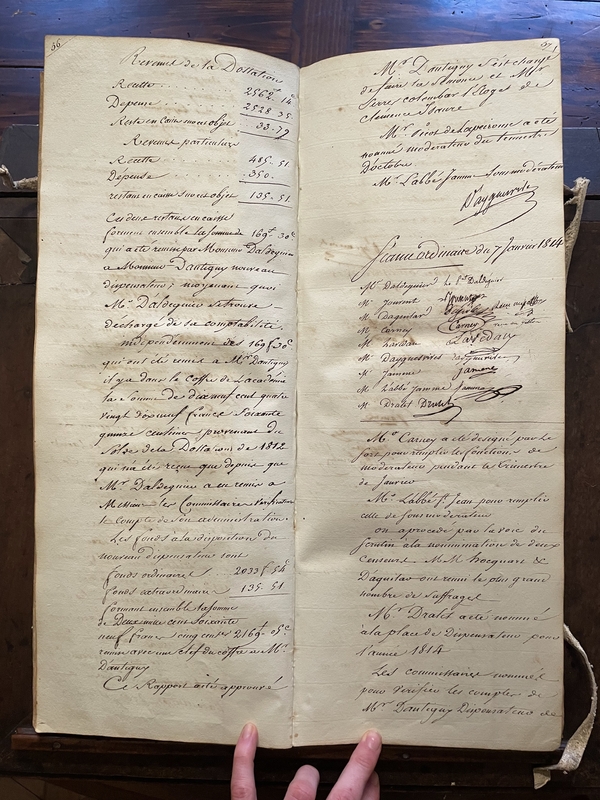 56
Revenus de la Dottation
Recette . . . 2562.tt 14.c
Depense . . . 2528 35.
Reste en Caisse 33-79
Revenus particuliers
Recette 485. 51.
Depense 350.
restant en caisse 135-51.
Ces deux restans en caisse
forment ensemble la somme de 169.tt 30.c
qui a été remise par Monsieur Daldeguier
a Monsieur Dantigny nouveau
dispensateur; moyennant quoi
Mr. Daldeguier se trouve
decharge de sa comptabilité.
independemment des 169f 30c
qui ont été remis a Mr. Dantigny
il y a dans le coffre de l'academie
la somme de dix neuf cent quatre
vingt dix neuf francs soixante
quinze centimes, provenant du
Solde de la Dottation de 1812
qui n'a été reçue que depuis que
Mr. Daldeguier a eu remis a
Messieurs les Commissaires verificateurs
le compte de son administration.
Les fonds a la disposition du
nouveau dispensateur sont
fonds ordinaires . . 2033f 54c
fonds extraordinaires 135. 51.
formant ensemble la somme
de Deux mille cent soixante
neuf francs cinq centes 2169tt 05c
remise avec une clef du coffre a Mr.
Dantigny
Ce Rapport a été approuvé
57
Mr. Dantigny s'est chargé
de faire la Semonce et Mr
Serres colombar l'Eloge de
Clemence Isaure
Mr. Picot de Lapeirouse a été
nommé moderateur du trimestre
d'octobre.
Mr. L'abbé Jamme Sous moderateur
Dayguesvive
Seance ordinaire du 7 Janvier 1814
Mr Daldeguier
Mr Jouvent
Mr Daguilar
Mr Carney Carney
Mr
Mr Dayguesvives dayguesvives
Mr Jamme jamme
Mr L'abbé Jamme jamme
Mr Dralet Dralet
Mr. Carney a été designé par le
sort pour remplir les fonctions de
moderateur pendant le trimestre
de janvier
Mr. L'abbé St Jean pour remplir
celle de sous moderateur
on a procedé par la voie du
scrutin a la nommination de deux
Censeurs. M.M. hocquart &
Daguilar ont reuni le plus grand
nombre de suffrages
Mr. Dralet a été nommé
à la place de dispensateur pour
l'année 1814
Les commissaires nommés
pour verifier les comptes de
Mr. Dantigny Dispensateur de